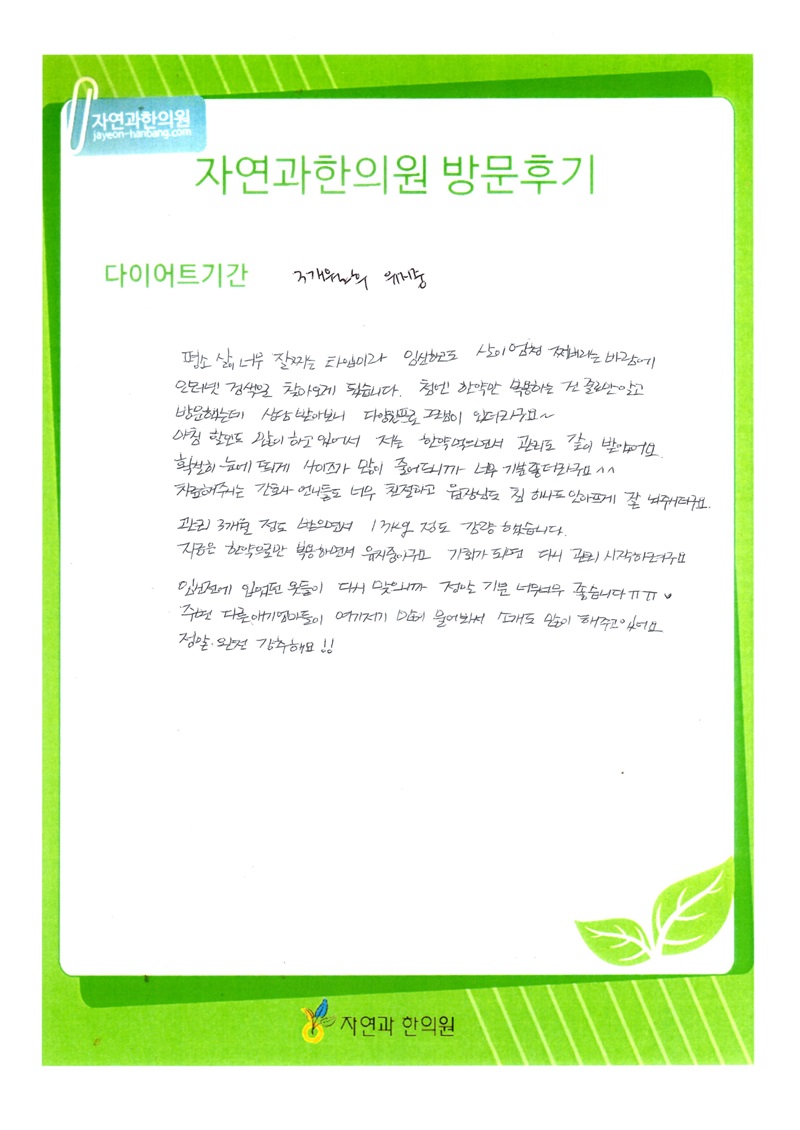 자연과한의원
jayeon-hanbang.com
자연과한의원 방문후기
다이어트기간 3개월난희 유지중
평소 살이 너무 잘찌는 타입이라 임신하고도 살이 엄청 쪄버리는 바람에
인터넷 검색을 찾아오게 됬습니다. 첨엔 한약만 복용하는 건 줄로만 알고
방문했는데 상담 받아보니 다양한프로그램이 있더라구요~
아침 할인도 많이 하고 있어서 저는 한약먹으면서 관리도 같이 받았어요.
확실히 눈에 띄게 사이즈가 많이 줄어드니까 너무 기분좋더라구요^^
치료해주시는 간호사 언니들도 너무 친절하고 원장님도 침 하나도 안아프게 잘 놔주시더라구요.
관리 3개월 정도 받으면서 정도 감량 했습니다.
지금은 한약으로만 복용하면서 유지중이구요 기회가 되면 다시 관리 시작하려구요
임신전에 입었던 옷들이 다시 맞으니까 정말 기분 너무너무 좋습니다ㅠㅠ
주변 다른애기엄마들이 여기저기 많이 물어봐서 소개도 많이 해주고있어요
정말 완전 강추해요!!
자연과 한의원